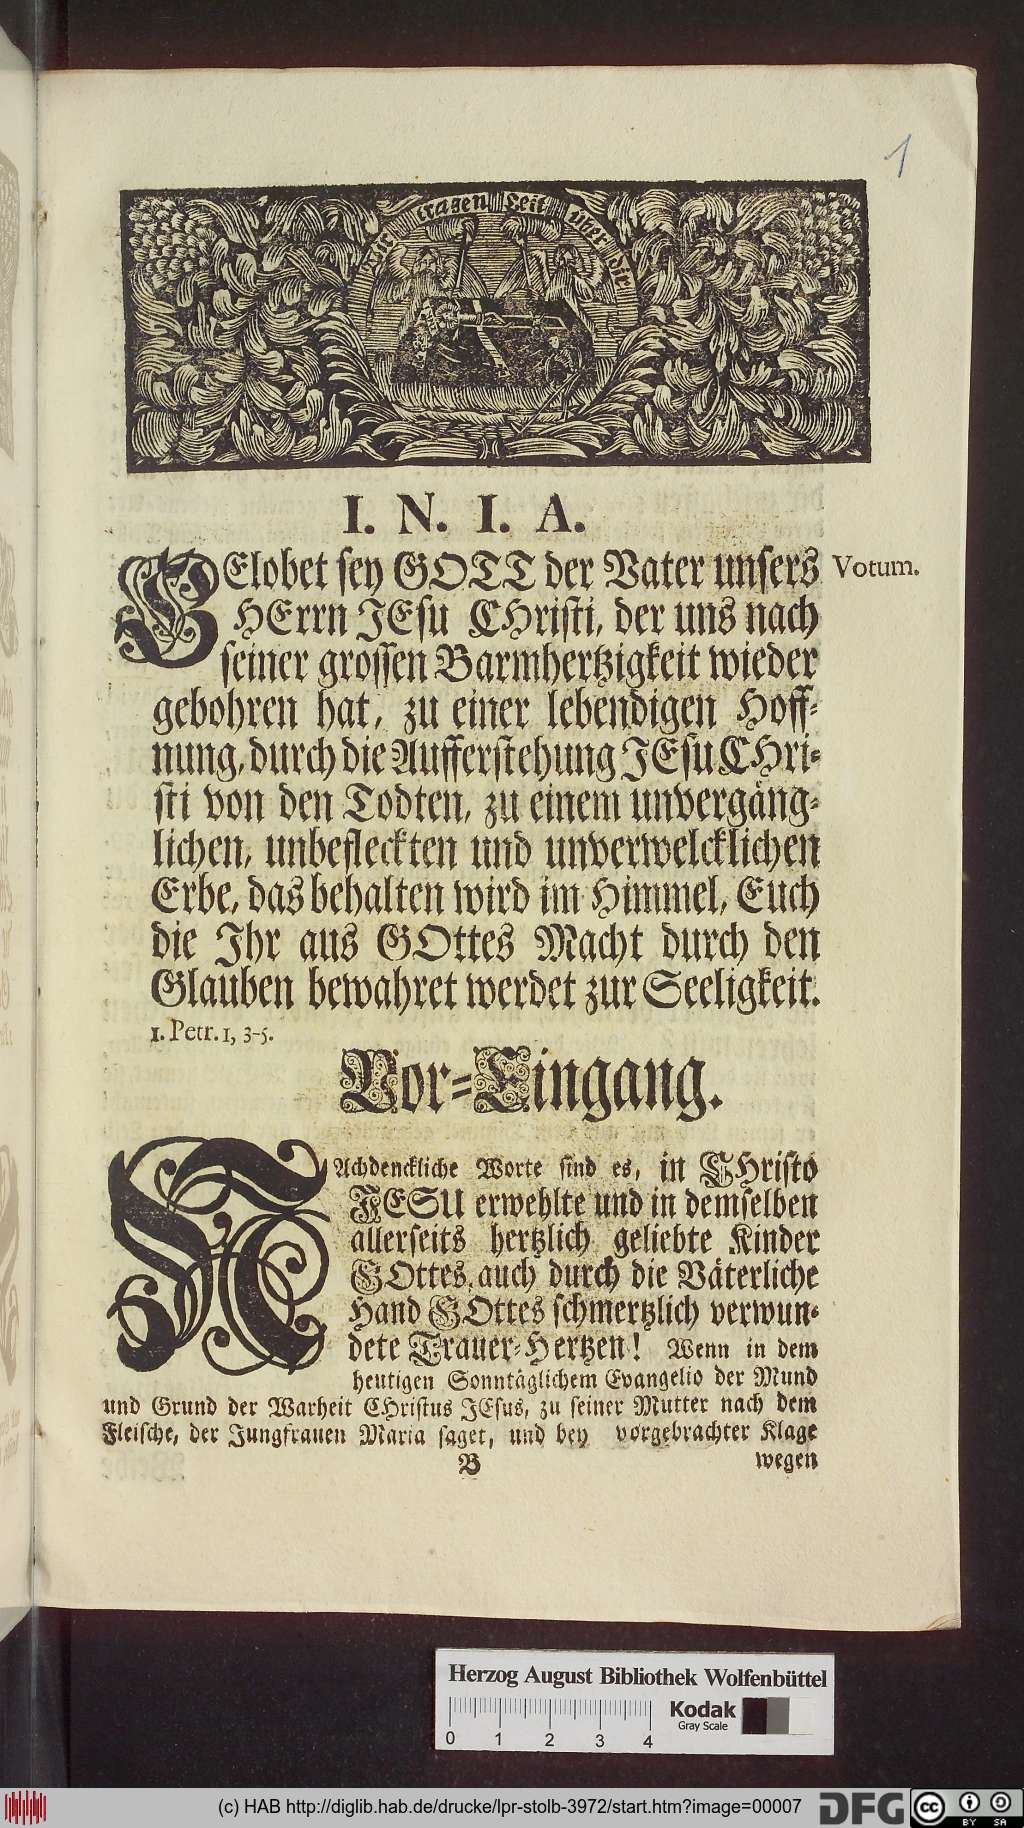 1
tragen Leit über die
I. N. I. A.
GElobet sey GOTT der Vater unsers
Votum.
HErrn JEsu CHristi, der uns nach
seiner grossen Barmhertzigkeit wieder
gebohren hat, zu einer lebendigen Hoff-
nung, durch die Aufferstehung JEsu CHri-
sti von den Todten, zu einem unvergäng-
lichen, unbefleckten und unverwelcklichen
Erbe, das behalten wird im Himmel, Euch
die Ihr aus GOttes Macht durch den
Glauben bewahret werdet zur Seeligkeit.
1. Petr. 1, 3-5.
Vor-Eingang.
NAchdenckliche Worte sind es, in CHristo
JESU erwehlte und in demselben
allerseits hertzlich geliebte Kinder
GOttes, auch durch die Väterliche
Hand GOttes schmertzlich verwun-
dete Trauer-Hertzen! Wenn in dem
heutigen Sonntäglichem Evangelio der Mund
und Grund der Warheit CHristus JEsus, zu seiner Mutter nach dem
Fleische, der Jungfrauen Maria saget, und bey vorgebrachter Klage
B
wegen
Herzog August Bibliothek Wolfenbüttel
0 1 2 3 4
Kodak
Gray Scale
(c) HAB http://diglib.hab.de/drucke/lpr-stolb-3972/start.htm?image=00007
DFG
cc BY SA